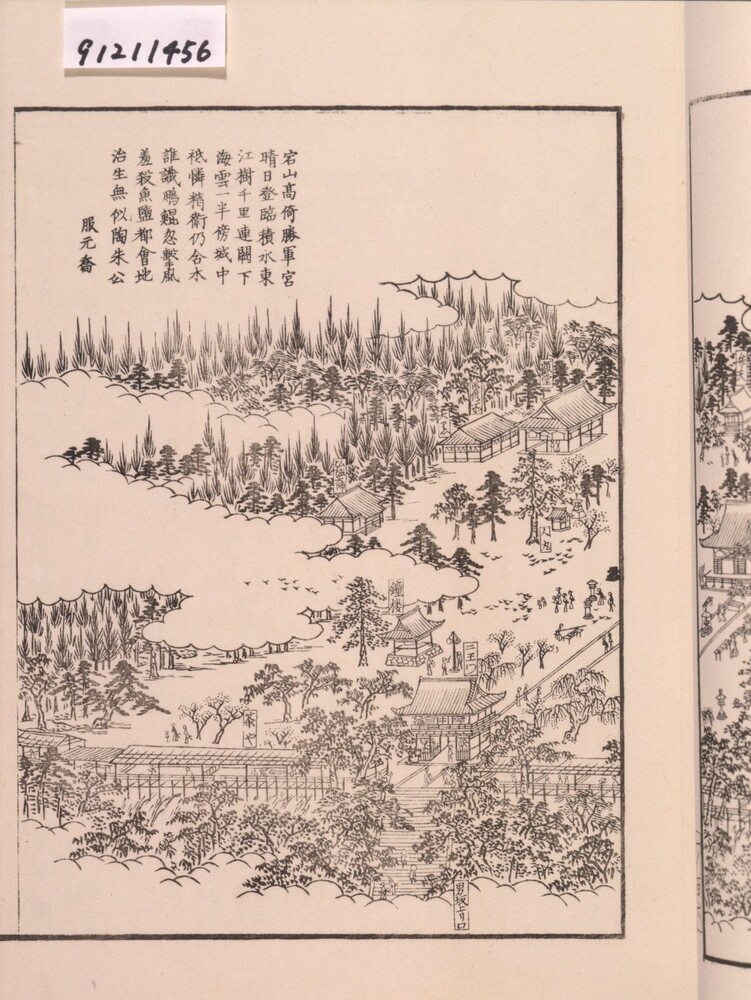 91211456
宕山高倚勝軍宮
晴日登臨積水東
江樹千里連闕下
海雲一半傍城中
祗憐精衛仍含木
誰識鵬鯤忽擊風
羞殺魚鹽都會地
治生無似陶朱公
服元喬
人丸
鐘楼
二王門
茶や
男坂上り口